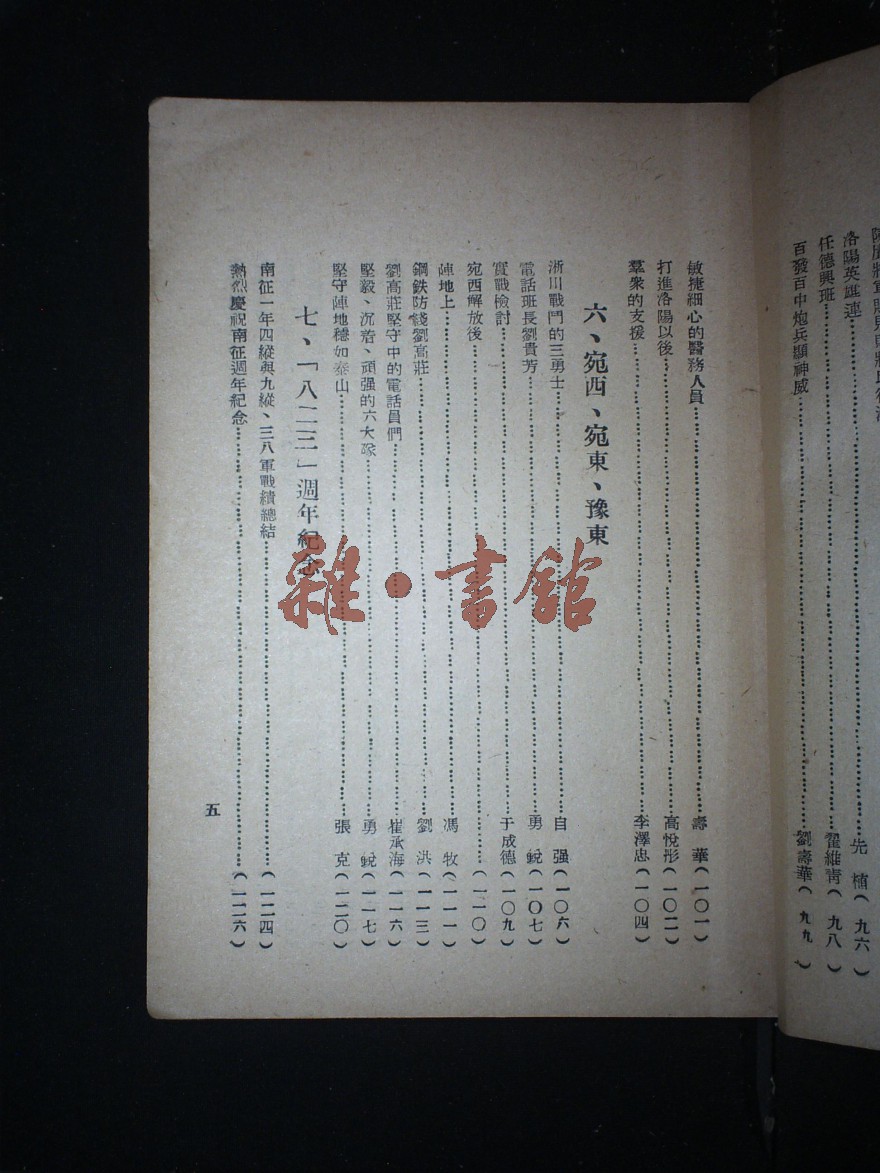 洛陽英雄連……先 植(九六)
任德興班……翟維靑(九八)
百發百中炮兵顯神威……劉壽華(九九)
敏捷細心的醫務人員……壽 華(一〇一)
打進洛陽以後……高悅彤(一〇二)
羣衆的支援……李澤忠(一〇四)
六、宛西、宛東、豫東
淅川戰鬥的三勇士……自 强(一〇六)
電話班長劉貴芳……勇 銳(一〇七)
實戰檢討……于成德(一〇九)
宛西解放後……(一一〇)
陣地上……馮 牧(一一一)
鋼鉄防綫劉高莊……劉 洪(一一三)
劉高莊堅守中的電話員們……崔承海(一一六)
堅毅、沉着、頑强的六大隊……勇 銳(一一七)
堅守陣地穩如泰山……張 克(一二〇)
七、「八二三」週年紀念
南征一年四縱與九縱、三八軍戰績總結……(一二四)
熱烈慶祝南征週年紀念……(一二六)
五
雜·書館